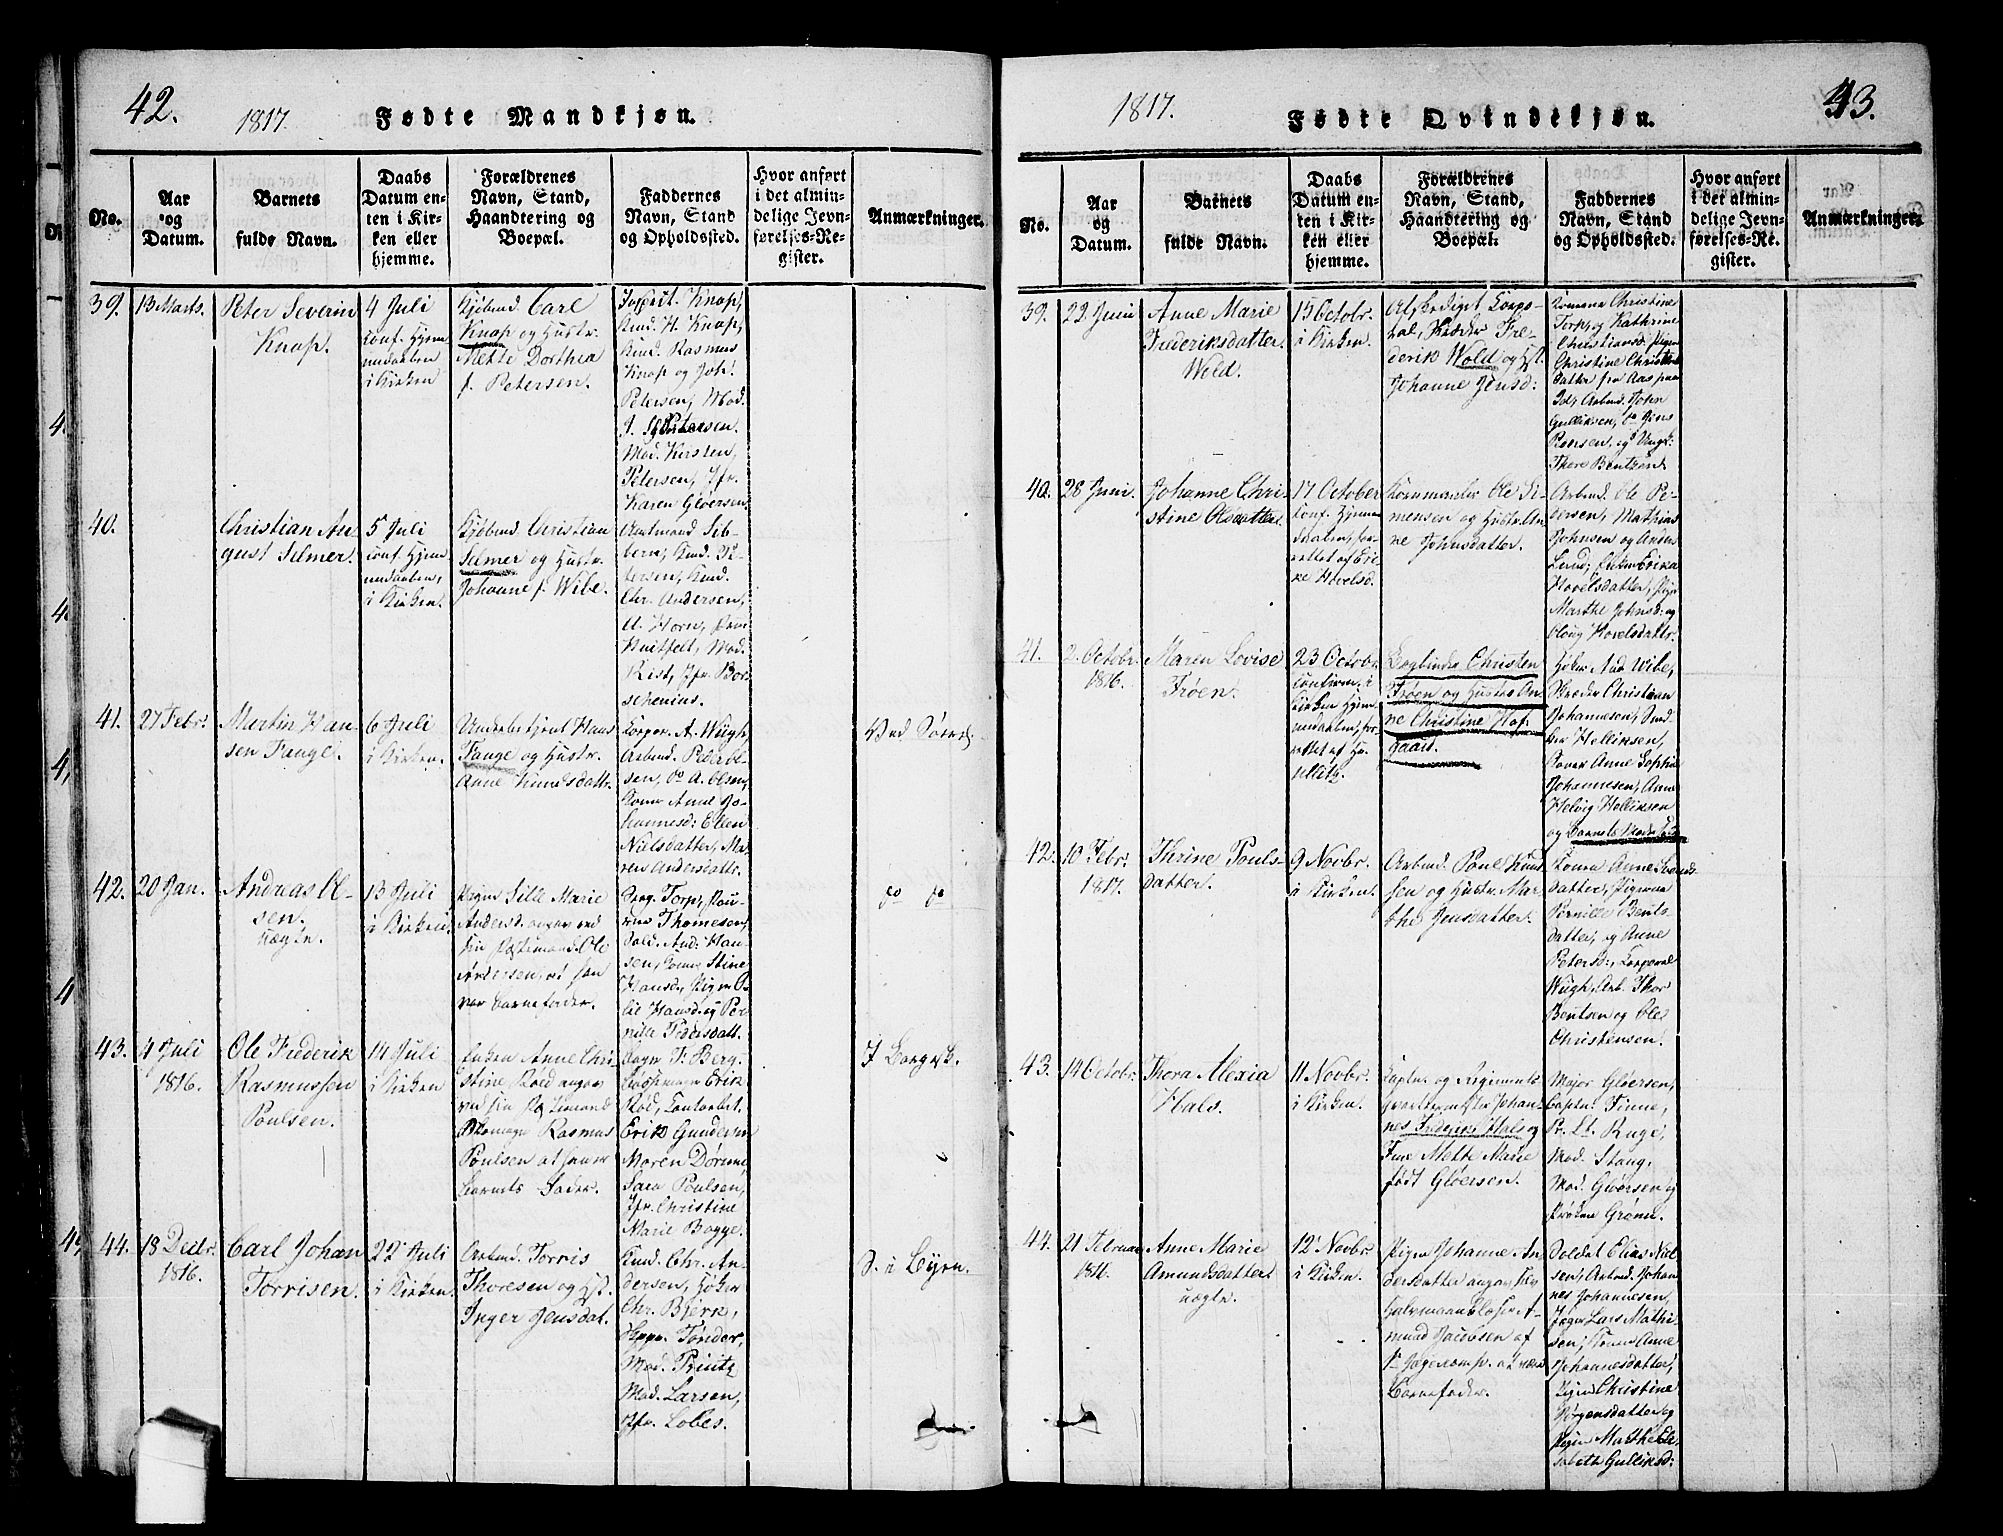 42.
1817.
Fødte Mandkjøn.
No.
Aar
og
Datum.
Barnets
fulde Navn.
Daabs
Datum en-
ten i Kir-
ken eller
hjemme.
Forældrenes
Navn, Stand,
Haandtering og
Boepæl.
Faddernes
Navn, Stand
og Opholdssted.
Hvor anført
i det almin-
delige Jevn-
førelses-Re-
gister.
Anmærkninger.
39.
13 Marts.
Peter Severin
Knap.
4 Juli
conf. Hjem-
medaaben
i Kirken
Kjøbmd. Carl
Knap og Hustr.
Mette Dorthea
f. Petersen.
Knap,
Kmd. H. Knap,
Kmd. Rasmus
Knap og Joh.
Petersen, Mad.
Petersen.
Mad. Kirsten
Petersen, Jfr.
Karen Gløersen.
40.
Christian Au-
gust Selmer.
5 Juli
conf. Hjem-
medaaben,
i Kirken.
Kjøbmd. Christian
Selmer og Hustr.
Johanne f. Wibe.
Amtmand Sib-
bern, Kmd. Pe-
tersen, Kmd.
Chr. Andersen,
A. Horn,
Huitfelt, Mad.
Rist, Jfr. Bor-
schenius.
41.
27 Febr.
Martin Han-
sen Tange.
6 Juli
i Kirken.
Hans
Tange og Hustr.
Anne Knudsdattr.
Corpor. A. Wügh,
Arbmd. Peder Ol-
sen, do A. Olsen,
Kone Anne Jo-
hannesd: Ellen
Nielsdatter, Ma-
ren Andersdattr.
42.
20 Jan.
Andreas Ol-
sen.
uægte.
13 Juli
i Kirken
Pigen Sille Marie
Andersd. angav ved
sin Ole
Andersen, at han
var Barnefader.
Torp,
Thomesen,
Sold. And: Han-
sen, Kone Stine
Hansd, Pigen
Hansd. og Per-
nille Pedersdatt.
do do
43.
4 Juli
1816.
Ole Frederik
Rasmussen
Poulsen.
14 Juli
i Kirken
Enken Anne Chri-
stine Röed angav
ved sin
Rasmus
Poulsen at han er
Barnets Fader.
F. Berg.
Erik
Röd, Contorbet.
Erik Gundersen
Maren
Sara Poulsen,
Jfr. Christine
Marie Bogge.
44.
18 Decbr
1816.
Carl Johan
Torrisen.
22 Juli
i Kirken.
Arbmd. Torris
Thoresen og Hst.
Inger Jensdat.
Kmd. Chr. An-
dersen, Høker
Chr. Bjerk,
Tønder,
Mad. Printz
Mad. Larsen,
Jfr. Lobes.
S. i Byen.
43.
1817.
Fødte Qvindekjøn.
No.
Aar
og
Datum.
Barnets
fulde Navn.
Daabs
Datum en-
ten i Kir-
ken eller
hjemme.
Forældrenes
Navn, Stand,
Haandtering og
Boepæl.
Faddernes
Navn, Stand
og Opholdssted.
Hvor anført
i det almin-
delige Jevn-
førelses-Re-
gister.
Anmærkninger.
39.
22 Juni
Anne Marie
Frederiksdatter
Wold.
15 Octobr.
i Kirken.
Afskediget Corpo-
ral, Skræder Fre-
derik Wold og Hst.
Johanne Jensd:
Konerne Christine
Torp, og Kathrine
Christiansd. Pigen
Christine Christens-
datter fra Aas paa
Id, Arbmd. John
Gulliksen, do Jens
og Ungk:
Thore Bentsen.
40.
28 Juni.
Johanne Chri-
stine Olsdatter.
17 October
conf. Hjemme-
daaben, for-
rettet af Eri-
ke Hovelsd.
Ole Si-
mensen og Hustr. An-
ne Johnsdatter.
Arbmd. Ole Pe-
dersen, Mathias
Johnsen og Anders
Lund; Enken Erika
Hovelsdatter, Pigen
Marthe Johnsd: og
Oloug Hovelsdattr.
41.
2. Octobr.
1816.
Maren Lovise
Frøen.
23 Octobr.
confirm. i
Kirken Hjem-
medaaben, for-
rettet af
Bogbinder Christen
Frøen og Hustr. An-
ne Christine Hof-
gaard.
Høker And Wibe,
Skræder Christian
Johannesen, Smd.
Helliksen,
Anne Sophie
Johannesen, Anne
Helvig Helliksen
og Barnets Moder
42.
10 Febr.
1817.
Thrine Pouls-
datter.
9 Novbr.
i Kirken.
Arbmd. Poul Knud-
sen og Hustr. Mar-
the Jensdatter.
Kone Anne Svends-
datter, Pigerne
Pernille Bents-
datter, og Anne
Petersd:, Corporal
Wügh, Arb. Thor
Bentsen og Ole
Christensen.
43.
14 Octobr.
Thora Alexia
Hals.
11 Novbr.
i Kirken.
Captn. og Regiments
qvarteermester Johan-
nes Frederik Hals og
Frue Mette Marie
født Gløersen.
Major Gløersen,
Captn. Finne,
Pr. Lt. Ruge,
Mad. Stang.
Mad. Gløersen og
Frøken Grønn.
44.
21 Februar
1816.
Anne Marie
Amundsdatter
uægte.
12 Novbr
i Kirken.
Pigen Johanne An-
dersdatter angav,
A-
mund Jacobsen af
at være
Barnefader.
Soldat Elias Niel-
sen, Arbmd. Johan-
nes Johannesen,
Jæger Lars Mathi-
sen, Kone Anne
Johannesdatter,
Pigen Christine
Jørgensdatter og
Pigen Marthe Eli-
sabeth Gulliksd: